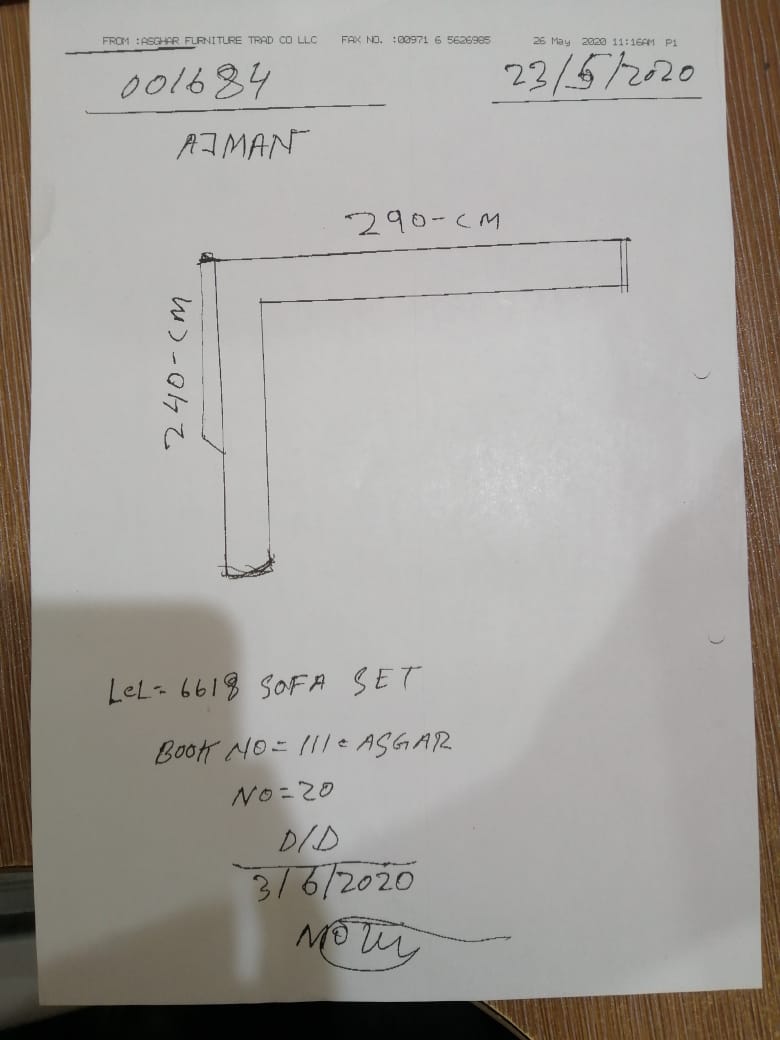 FROM :ASGHAR FURNITURE TRAD CO LLC FAX NO. :00971 6 5626985 26 May 2020 11:16AM P1
001684 23/5/2020
AJMAN
290-CM
240-CM
LCL= 6618 SOFA SET
BOOK NO= 111= ASGAR
NO=20
D/D
3/6/2020